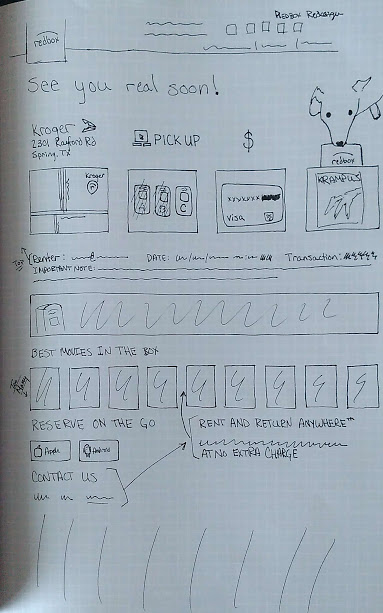 REDBOX Redesign
redbox
See you real soon!
Kroger
2301 Rayford Rd
Spring, TX
PICK UP
$
redbox
Kroger
A
B
C
xxxxxxx
VISA
KRAMPUS
Renter:
DATE:
Transaction:
IMPORTANT NOTE:
BEST MOVIES IN THE BOX
RESERVE ON THE GO
Apple
Android
RENT AND RETURN ANYWHERE™
AT NO EXTRA CHARGE
CONTACT US